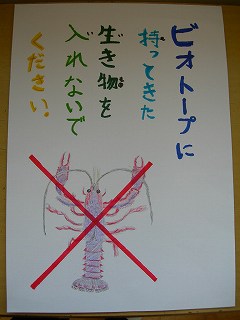 ビオトープに
持ってきた
生き物を
入れないで
ください。